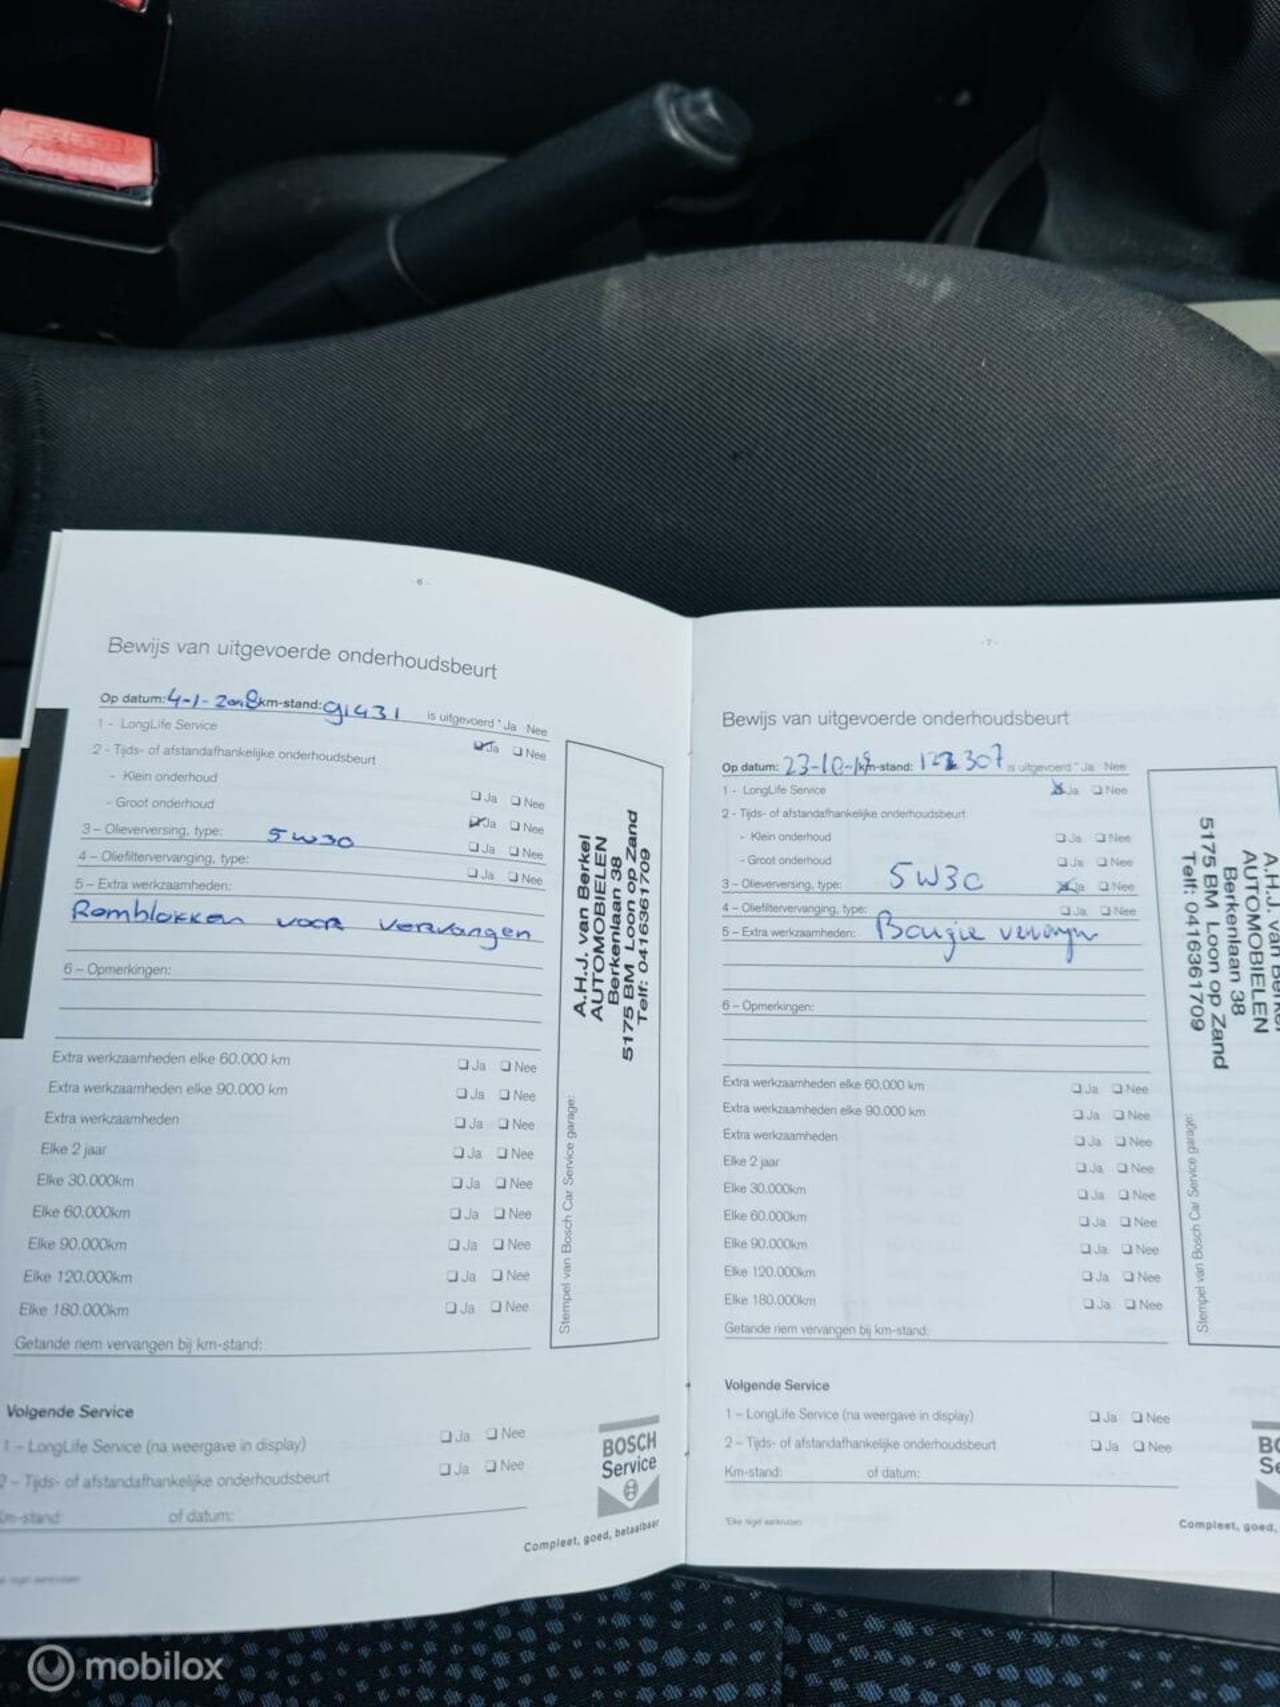 - 6 -
Bewijs van uitgevoerde onderhoudsbeurt
Op datum: 4-1-2018 km-stand: 91431 is uitgevoerd * Ja Nee
1 - LongLife Service ❏ Ja ❏ Nee
2 - Tijds- of afstandafhankelijke onderhoudsbeurt
- Klein onderhoud ❏ Ja ❏ Nee
- Groot onderhoud ❏ Ja ❏ Nee
3 – Olieverversing, type: 5W30 ❏ Ja ❏ Nee
4 – Oliefiltervervanging, type: ❏ Ja ❏ Nee
5 – Extra werkzaamheden:
Remblokken voor vervangen
6 – Opmerkingen:
Extra werkzaamheden elke 60.000 km ❏ Ja ❏ Nee
Extra werkzaamheden elke 90.000 km ❏ Ja ❏ Nee
Extra werkzaamheden ❏ Ja ❏ Nee
Elke 2 jaar ❏ Ja ❏ Nee
Elke 30.000km ❏ Ja ❏ Nee
Elke 60.000km ❏ Ja ❏ Nee
Elke 90.000km ❏ Ja ❏ Nee
Elke 120.000km ❏ Ja ❏ Nee
Elke 180.000km ❏ Ja ❏ Nee
Getande riem vervangen bij km-stand:
Stempel van Bosch Car Service garage:
A.H.J. van Berkel
AUTOMOBIELEN
Berkenlaan 38
5175 BM Loon op Zand
Telf: 0416361709
Volgende Service
1 – LongLife Service (na weergave in display) ❏ Ja ❏ Nee
2 – Tijds- of afstandafhankelijke onderhoudsbeurt ❏ Ja ❏ Nee
Km-stand: of datum:
BOSCH
Service
Compleet, goed, betaalbaar
- 7 -
Bewijs van uitgevoerde onderhoudsbeurt
Op datum: 23-10-19 km-stand: 122307 is uitgevoerd * Ja Nee
1 - LongLife Service ❏ Ja ❏ Nee
2 - Tijds- of afstandafhankelijke onderhoudsbeurt
- Klein onderhoud ❏ Ja ❏ Nee
- Groot onderhoud ❏ Ja ❏ Nee
3 – Olieverversing, type: 5W30 ❏ Ja ❏ Nee
4 – Oliefiltervervanging, type: ❏ Ja ❏ Nee
5 – Extra werkzaamheden: Bougie
6 – Opmerkingen:
Extra werkzaamheden elke 60.000 km ❏ Ja ❏ Nee
Extra werkzaamheden elke 90.000 km ❏ Ja ❏ Nee
Extra werkzaamheden ❏ Ja ❏ Nee
Elke 2 jaar ❏ Ja ❏ Nee
Elke 30.000km ❏ Ja ❏ Nee
Elke 60.000km ❏ Ja ❏ Nee
Elke 90.000km ❏ Ja ❏ Nee
Elke 120.000km ❏ Ja ❏ Nee
Elke 180.000km ❏ Ja ❏ Nee
Getande riem vervangen bij km-stand:
Stempel van Bosch Car Service garage:
A.H.J. van Berkel
AUTOMOBIELEN
Berkenlaan 38
5175 BM Loon op Zand
Telf: 0416361709
Volgende Service
1 – LongLife Service (na weergave in display) ❏ Ja ❏ Nee
2 – Tijds- of afstandafhankelijke onderhoudsbeurt ❏ Ja ❏ Nee
Km-stand: of datum:
*Elke regel aankruisen
Compleet, goed,
mobilox